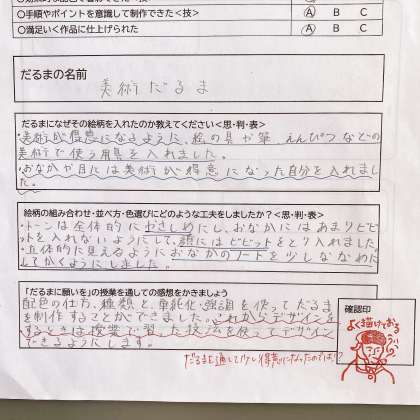 ○手順やポイントを意識して制作できた<技> A B C
○満足いく作品に仕上げられた A B C
だるまの名前
美術だるま
だるまになぜその絵柄を入れたのか教えてください<思・判・表>
・美術が得意になるように、絵の具や筆、えんぴつなどの
美術で使う用具を入れました。
・おなかや目には美術が得意になった自分を入れまし
た。
絵柄の組み合わせ・並べ方・色選びにどのような工夫をしましたか?<思・判・表>
・トーンは全体的におさえめにし、おなかにはあまりビビ
ットを入れないようにして、顔にはビビットをとり入れました。
・立体的に見えるようにおなかのノートを少しななめに
してかくようにしました。
「だるまに願いを」の授業を通しての感想をかきましょう
配色の仕方、種類と、単純化・強調を使ってだるま
を制作することができました。これからデザインを
するときは授業で習った技法を使ってデザイン
できるようにします。
確認印
よく描けている
だるまを通して少し得意になったのでは!?